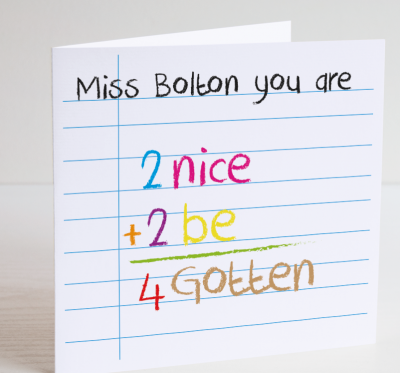 Miss Bolton you are
2 nice
+2 be
4 Gotten